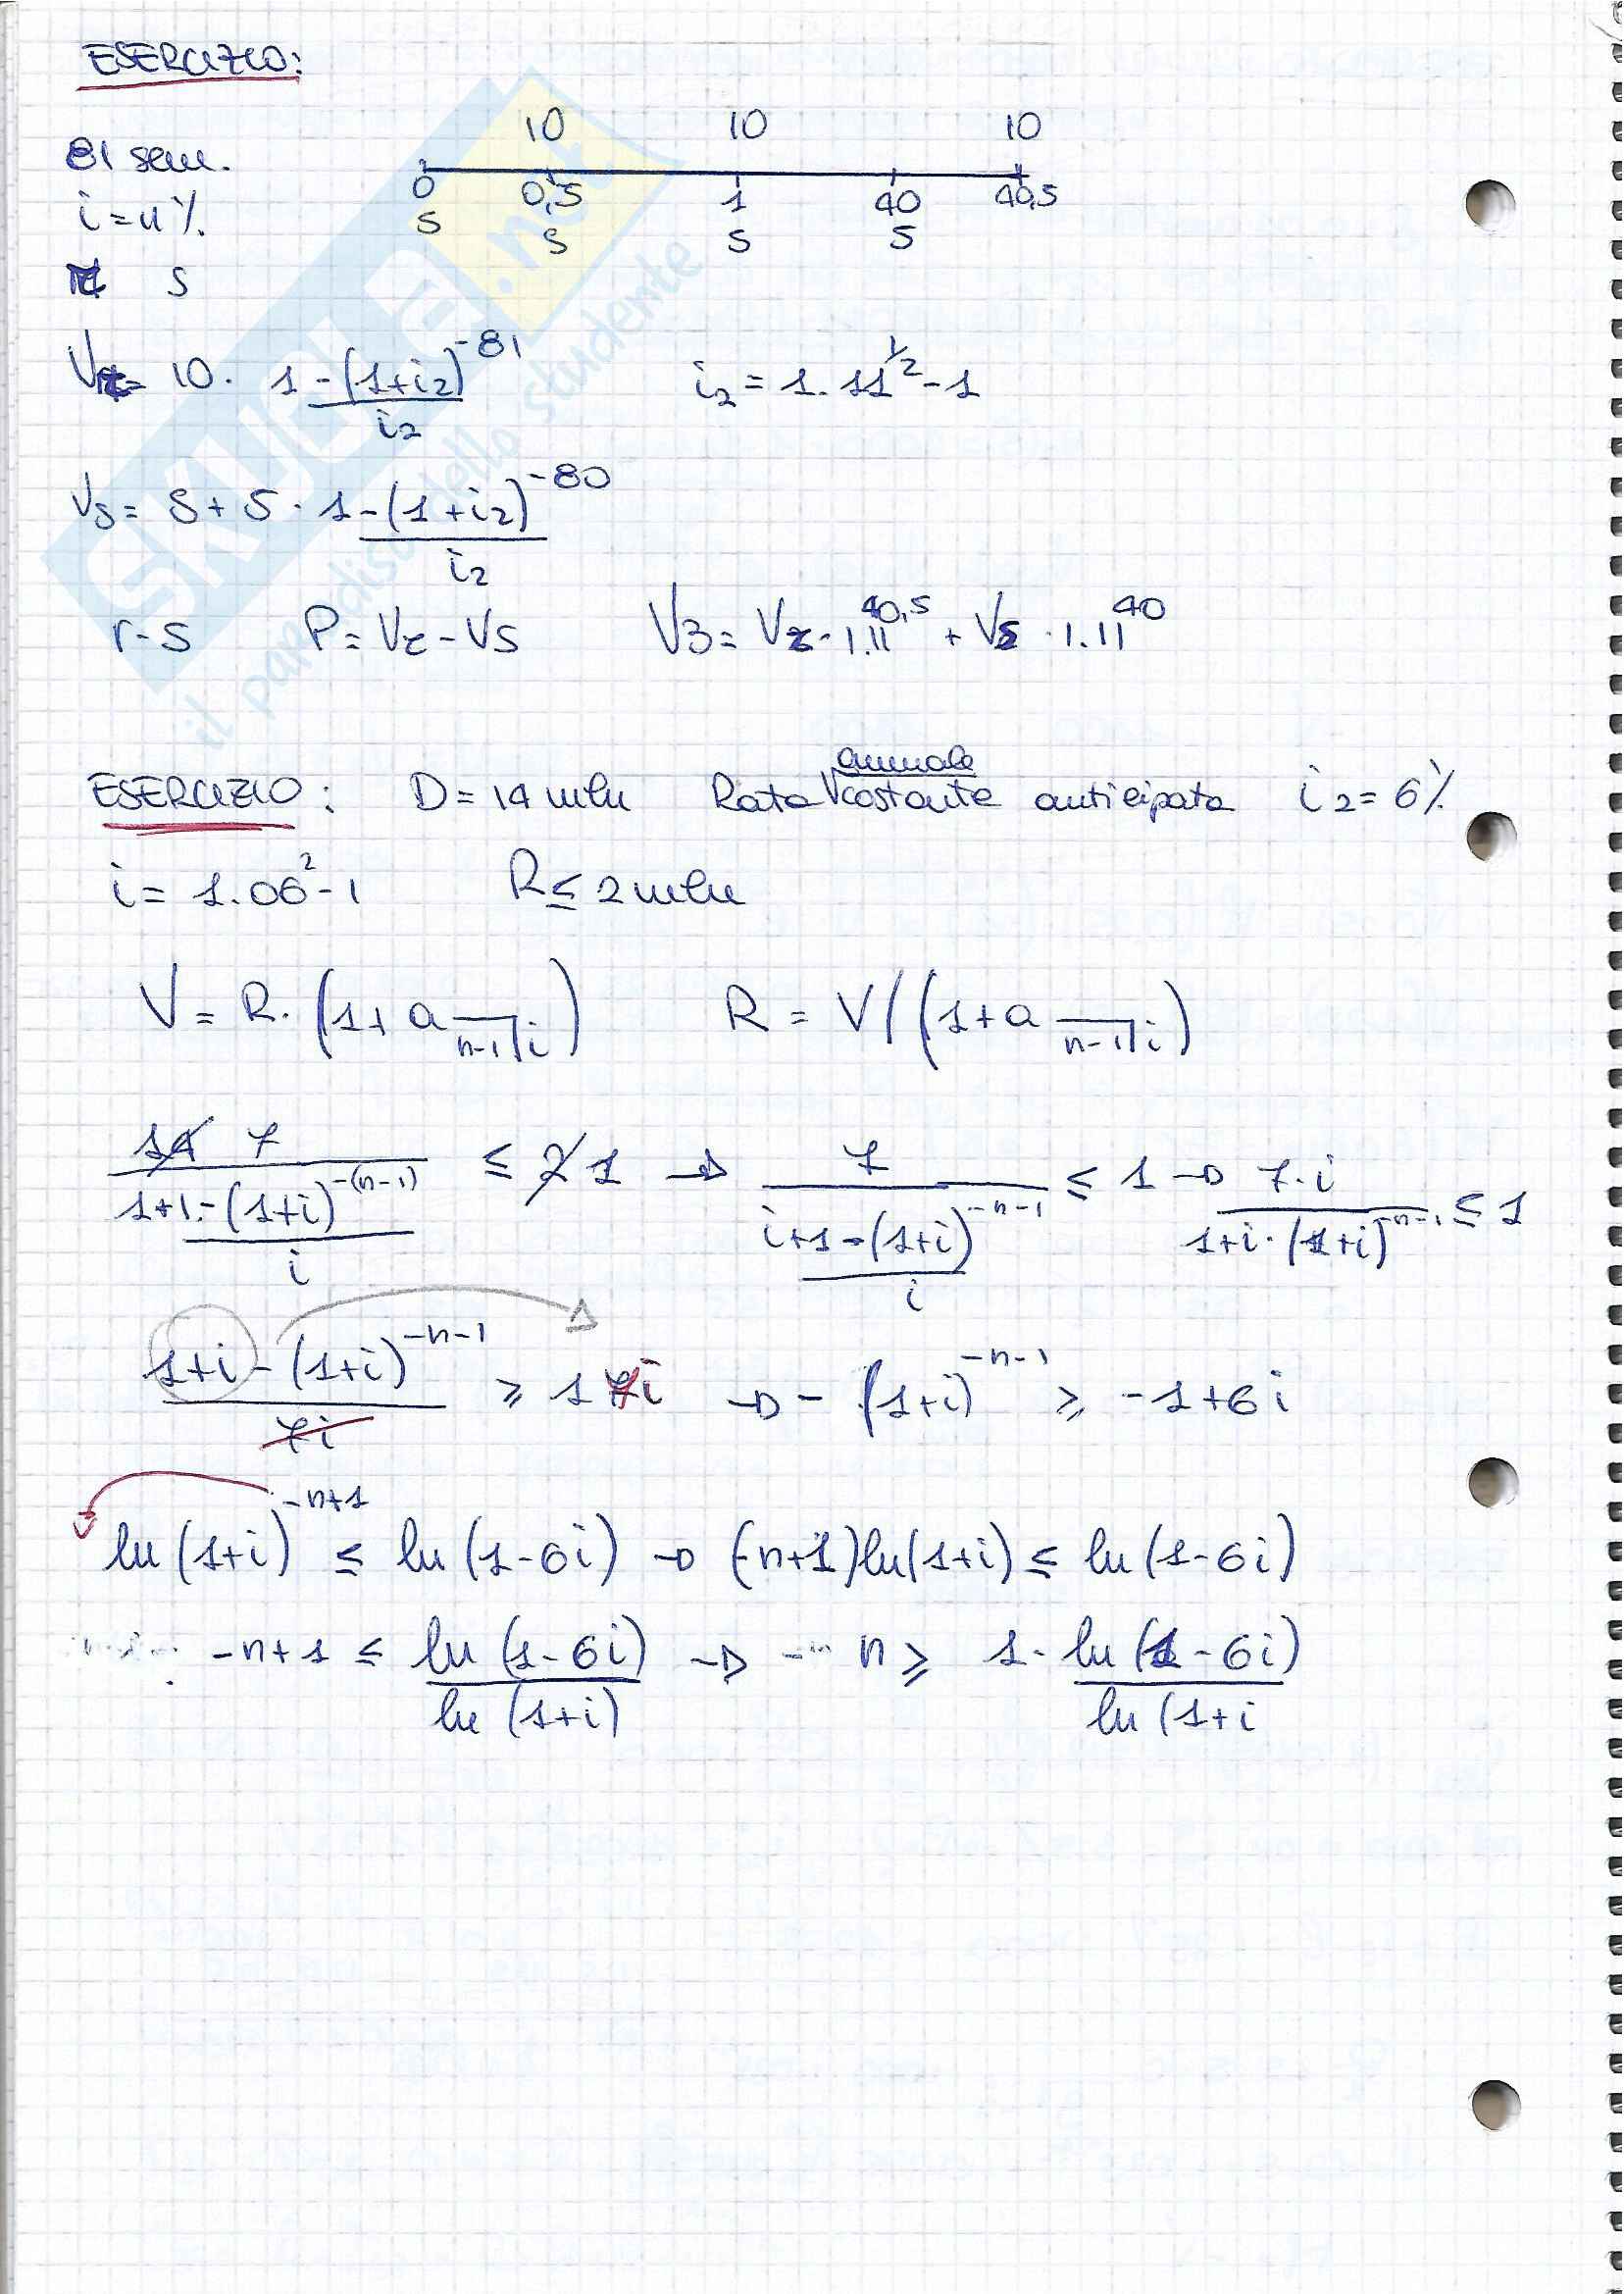 ESERCIZIO:
10 10 10
81 sem.
0 0,5 1 40 40,5
i = 11%
5 5 5 5
s
Vr = 10 · 1-(1+i₂)^-81 / i₂   i₂ = 1.11^1/2 - 1
Vs = 5 + 5 · 1-(1+i₂)^-80 / i₂
r-s   P = Vr - Vs   V3 = Vr · 1.11^40,5 + Vs · 1.11^40
ESERCIZIO: D = 14 mln Rata annuale costante anticipata i₂ = 6%
i = 1.06² - 1   R ≤ 2 mln
V = R · (1 + a n-1|i)   R = V/(1 + a n-1|i)
14 7 / 1+1-(1+i)^-(n-1) / i ≤ 2 1 → 7 / i+1-(1+i)^-n-1 / i ≤ 1 → 7·i / 1+i·(1+i)^-n-1 ≤ 1
1+i-(1+i)^-n-1 / 7i ≥ 1 7i → -(1+i)^-n-1 ≥ -1+6i
ln(1+i)^-n+1 ≤ ln(1-6i) → (-n+1)ln(1+i) ≤ ln(1-6i)
-n+1 ≤ ln(1-6i) / ln(1+i) → n ≥ 1 - ln(1-6i) / ln(1+i
SKUOLA.net
il paradiso dello studente